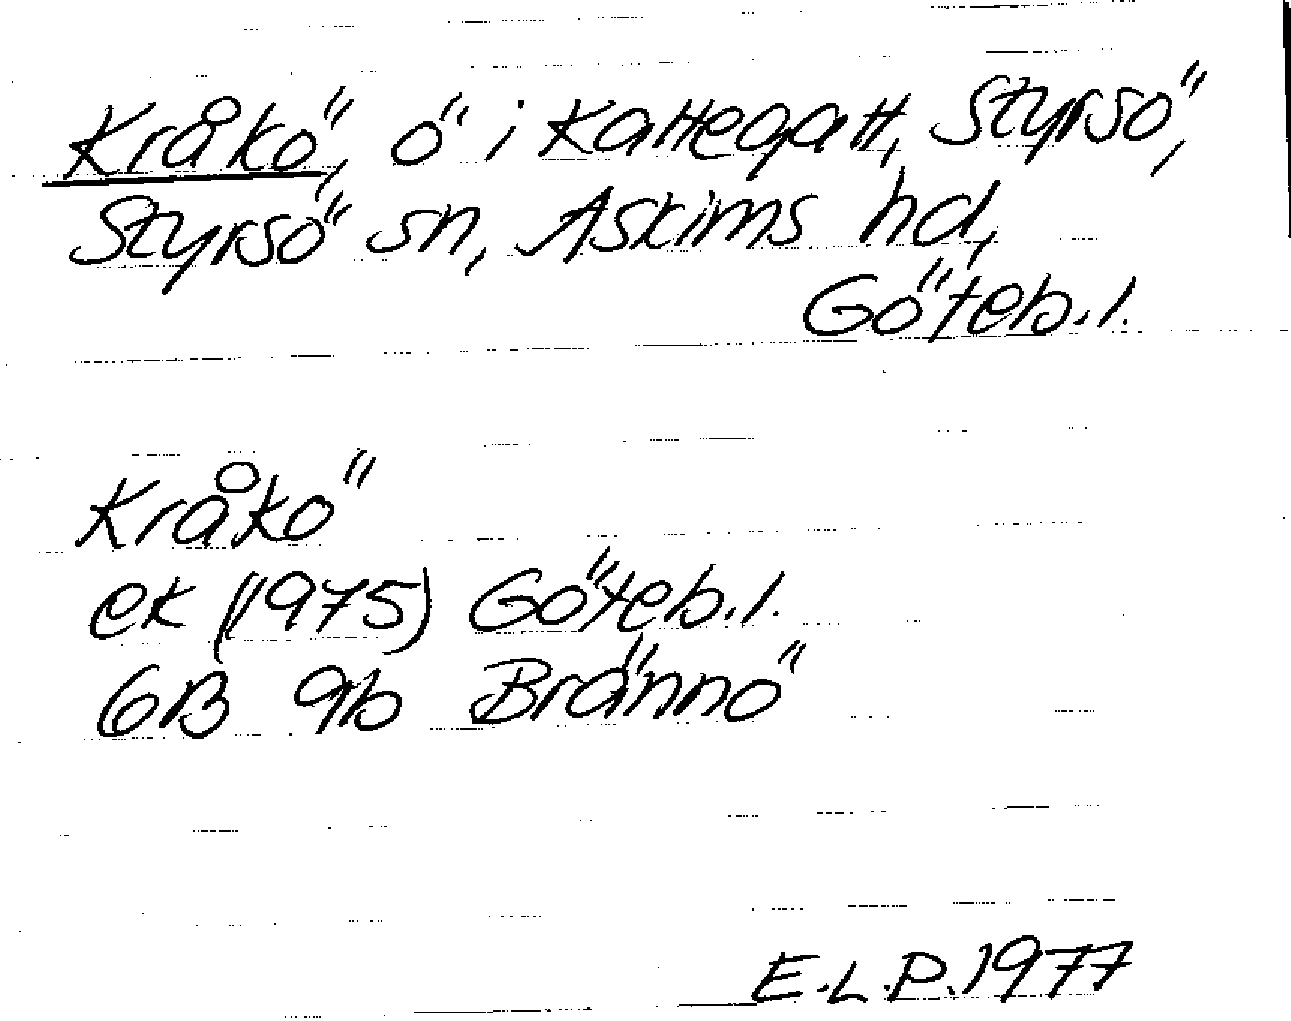 Kråkö, ö i Kattegatt, Styrsö,
Styrsö sn, Askims hd,
Göteb. l.
Kråkö
ek (1975) Göteb. l.
6B 9b Brännö
E.L.P. 1977